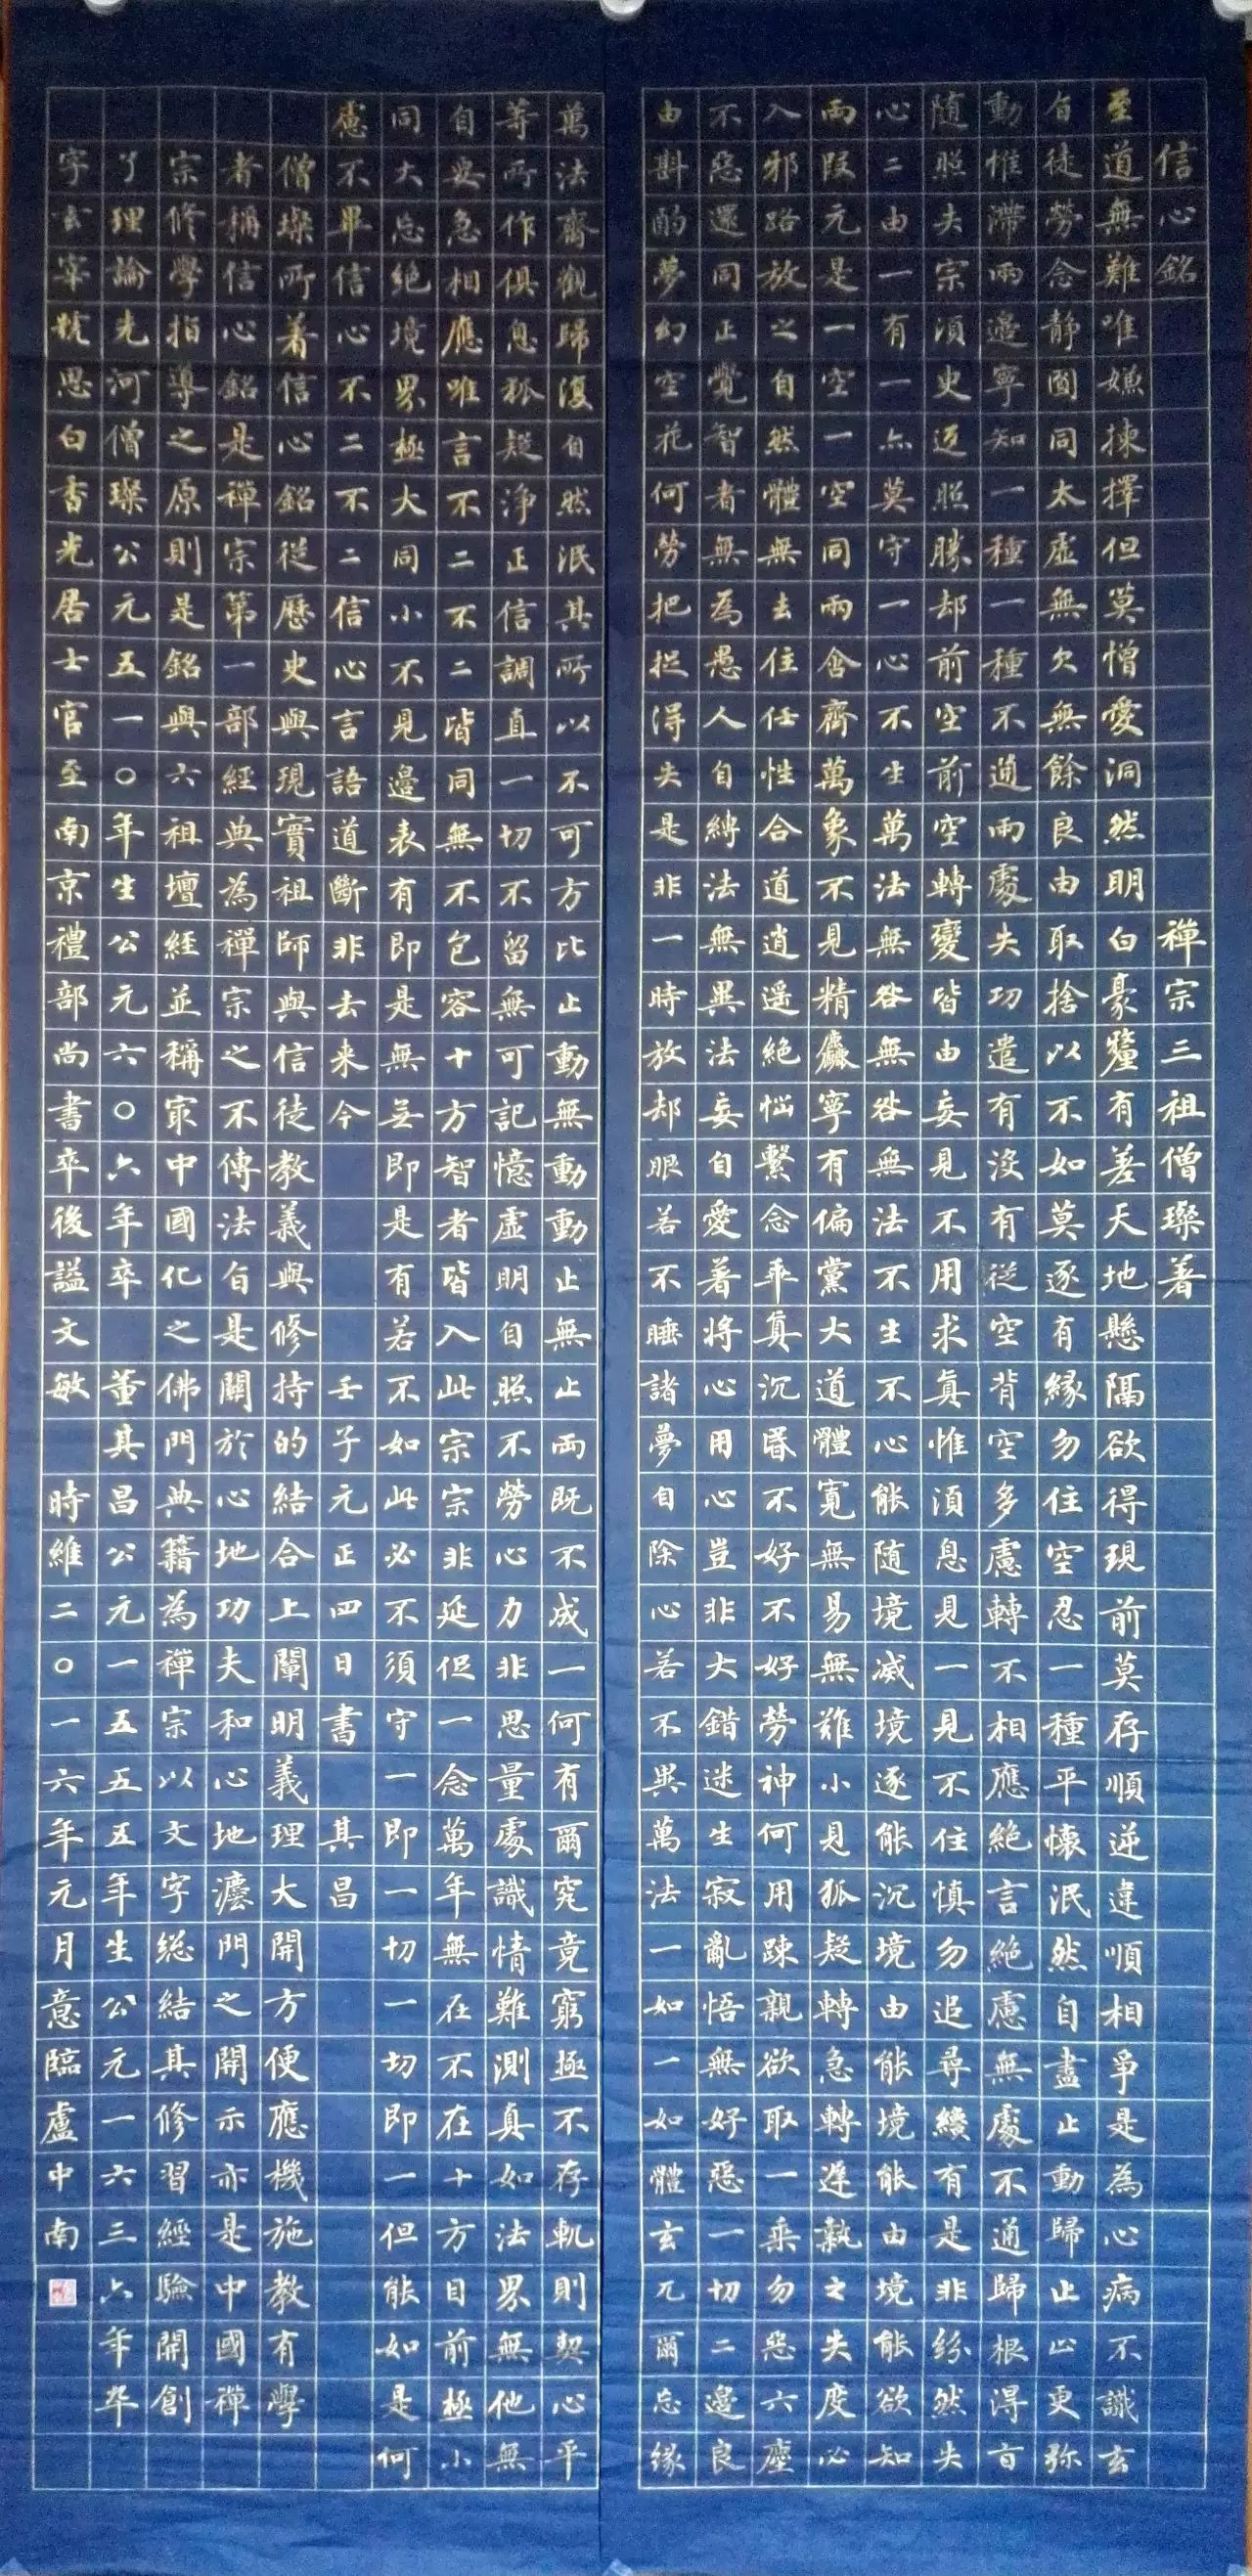 信心銘 禪宗三祖僧璨著
至道無難唯嫌揀擇但莫憎愛洞然明白豪釐有差天地懸隔欲得現前莫存順逆違順相爭是為心病不識玄
旨徒勞念静圓同太虛無欠無餘良由取捨以不如莫逐有緣勿住空忍一種平懷泯然自盡止動歸止止更弥
動惟滯兩邊寧知一種一種不通兩處失功遣有沒有從空背空多慮轉不相應絕言絕慮無處不通歸根得旨
随照失宗須臾返照勝却前空前空轉變皆由妄見不用求真惟須息見一見不住慎勿追尋纔有是非紛然失
心二由一有一亦莫守一心不生萬法無咎無咎無法不生不心能随境滅境逐能沉境由能境能由境能欲知
兩段元是一空一空同兩含齊萬象不見精麤寧有偏黨大道體寬無易無難小見狐疑轉急轉遲執之失度必
入邪路放之自然體無去住任性合道逍遥絕惱繫念乖真沉昏不好不好勞神何用踈親欲取一乘勿惡六塵
不惡還同正覺智者無為愚人自縛法無異法妄自愛著將心用心豈非大錯迷生寂亂悟無好惡一切二邊良
由斟酌夢幻空花何勞把捉得失是非一時放却眼若不睡諸夢自除心若不異萬法一如一如體玄兀爾忘緣
萬法齊觀歸復自然泯其所以不可方比止動無動動止無止兩既不成一何有爾究竟窮極不存軌則契心平
等所作俱息狐疑浄正信調直一切不留無可記憶虛明自照不勞心力非思量處識情難測真如法界無他無
自要急相應唯言不二不二皆同無不包容十方智者皆入此宗宗非延促一念萬年無在不在十方目前極小
同大忘絕境界極大同小不見邊表有即是無無即是有若不如此必不須守一即一切一切即一但能如是何
慮不畢信心不二不二信心言語道斷非去来今 壬子元正四日書 其昌
僧璨所著信心銘從歷史與現實祖師與信徒教義與修持的結合上闡明義理大開方便應機施教有學
者稱信心銘是禪宗第一部經典為禪宗之不傳法自是關於心地功夫和心地灋門之開示亦是中國禪
宗修學指導之原則是銘與六祖壇經並稱㝡中國化之佛門典籍為禪宗以文字総結其修習經驗開創
了理論先河僧璨公元五一〇年生公元六〇六年卒 董其昌公元一五五五年生公元一六三六年卒
字玄宰號思白香光居士官至南京禮部尚書卒後謚文敏 時維二〇一六年元月意臨盧中南